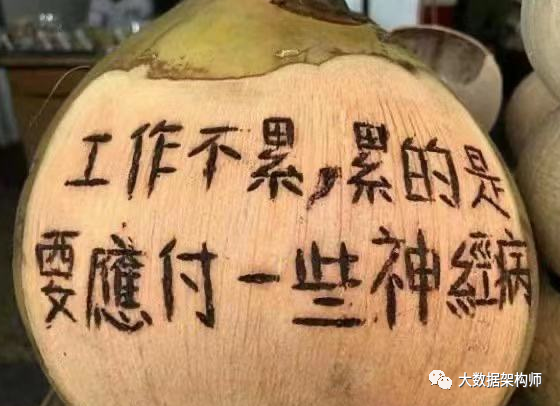 工作不累,累的是
要應付一些神經病
大数据架构师